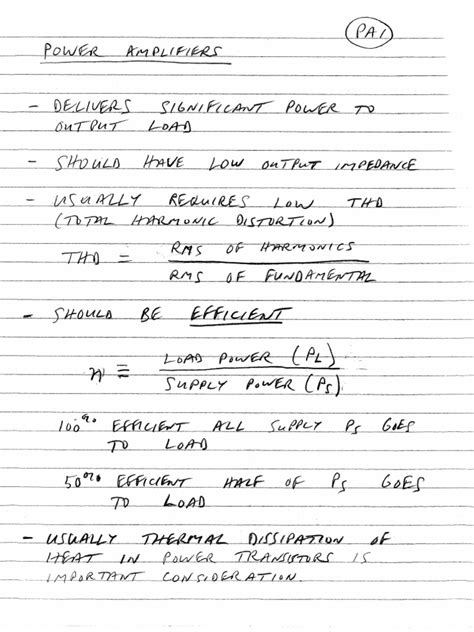 PA1
POWER AMPLIFIERS
- DELIVERS SIGNIFICANT POWER TO
OUTPUT LOAD
- SHOULD HAVE LOW OUTPUT IMPEDANCE
- USUALLY REQUIRES LOW THD
(TOTAL HARMONIC DISTORTION)
THD = RMS OF HARMONICS
RMS OF FUNDAMENTAL
- SHOULD BE EFFICIENT
η ≡ LOAD POWER (PL)
SUPPLY POWER (PS)
100% EFFICIENT ALL SUPPLY PS GOES
TO LOAD
50% EFFICIENT HALF OF PS GOES
TO LOAD
- USUALLY THERMAL DISSIPATION OF
HEAT IN POWER TRANSISTORS IS
IMPORTANT CONSIDERATION.